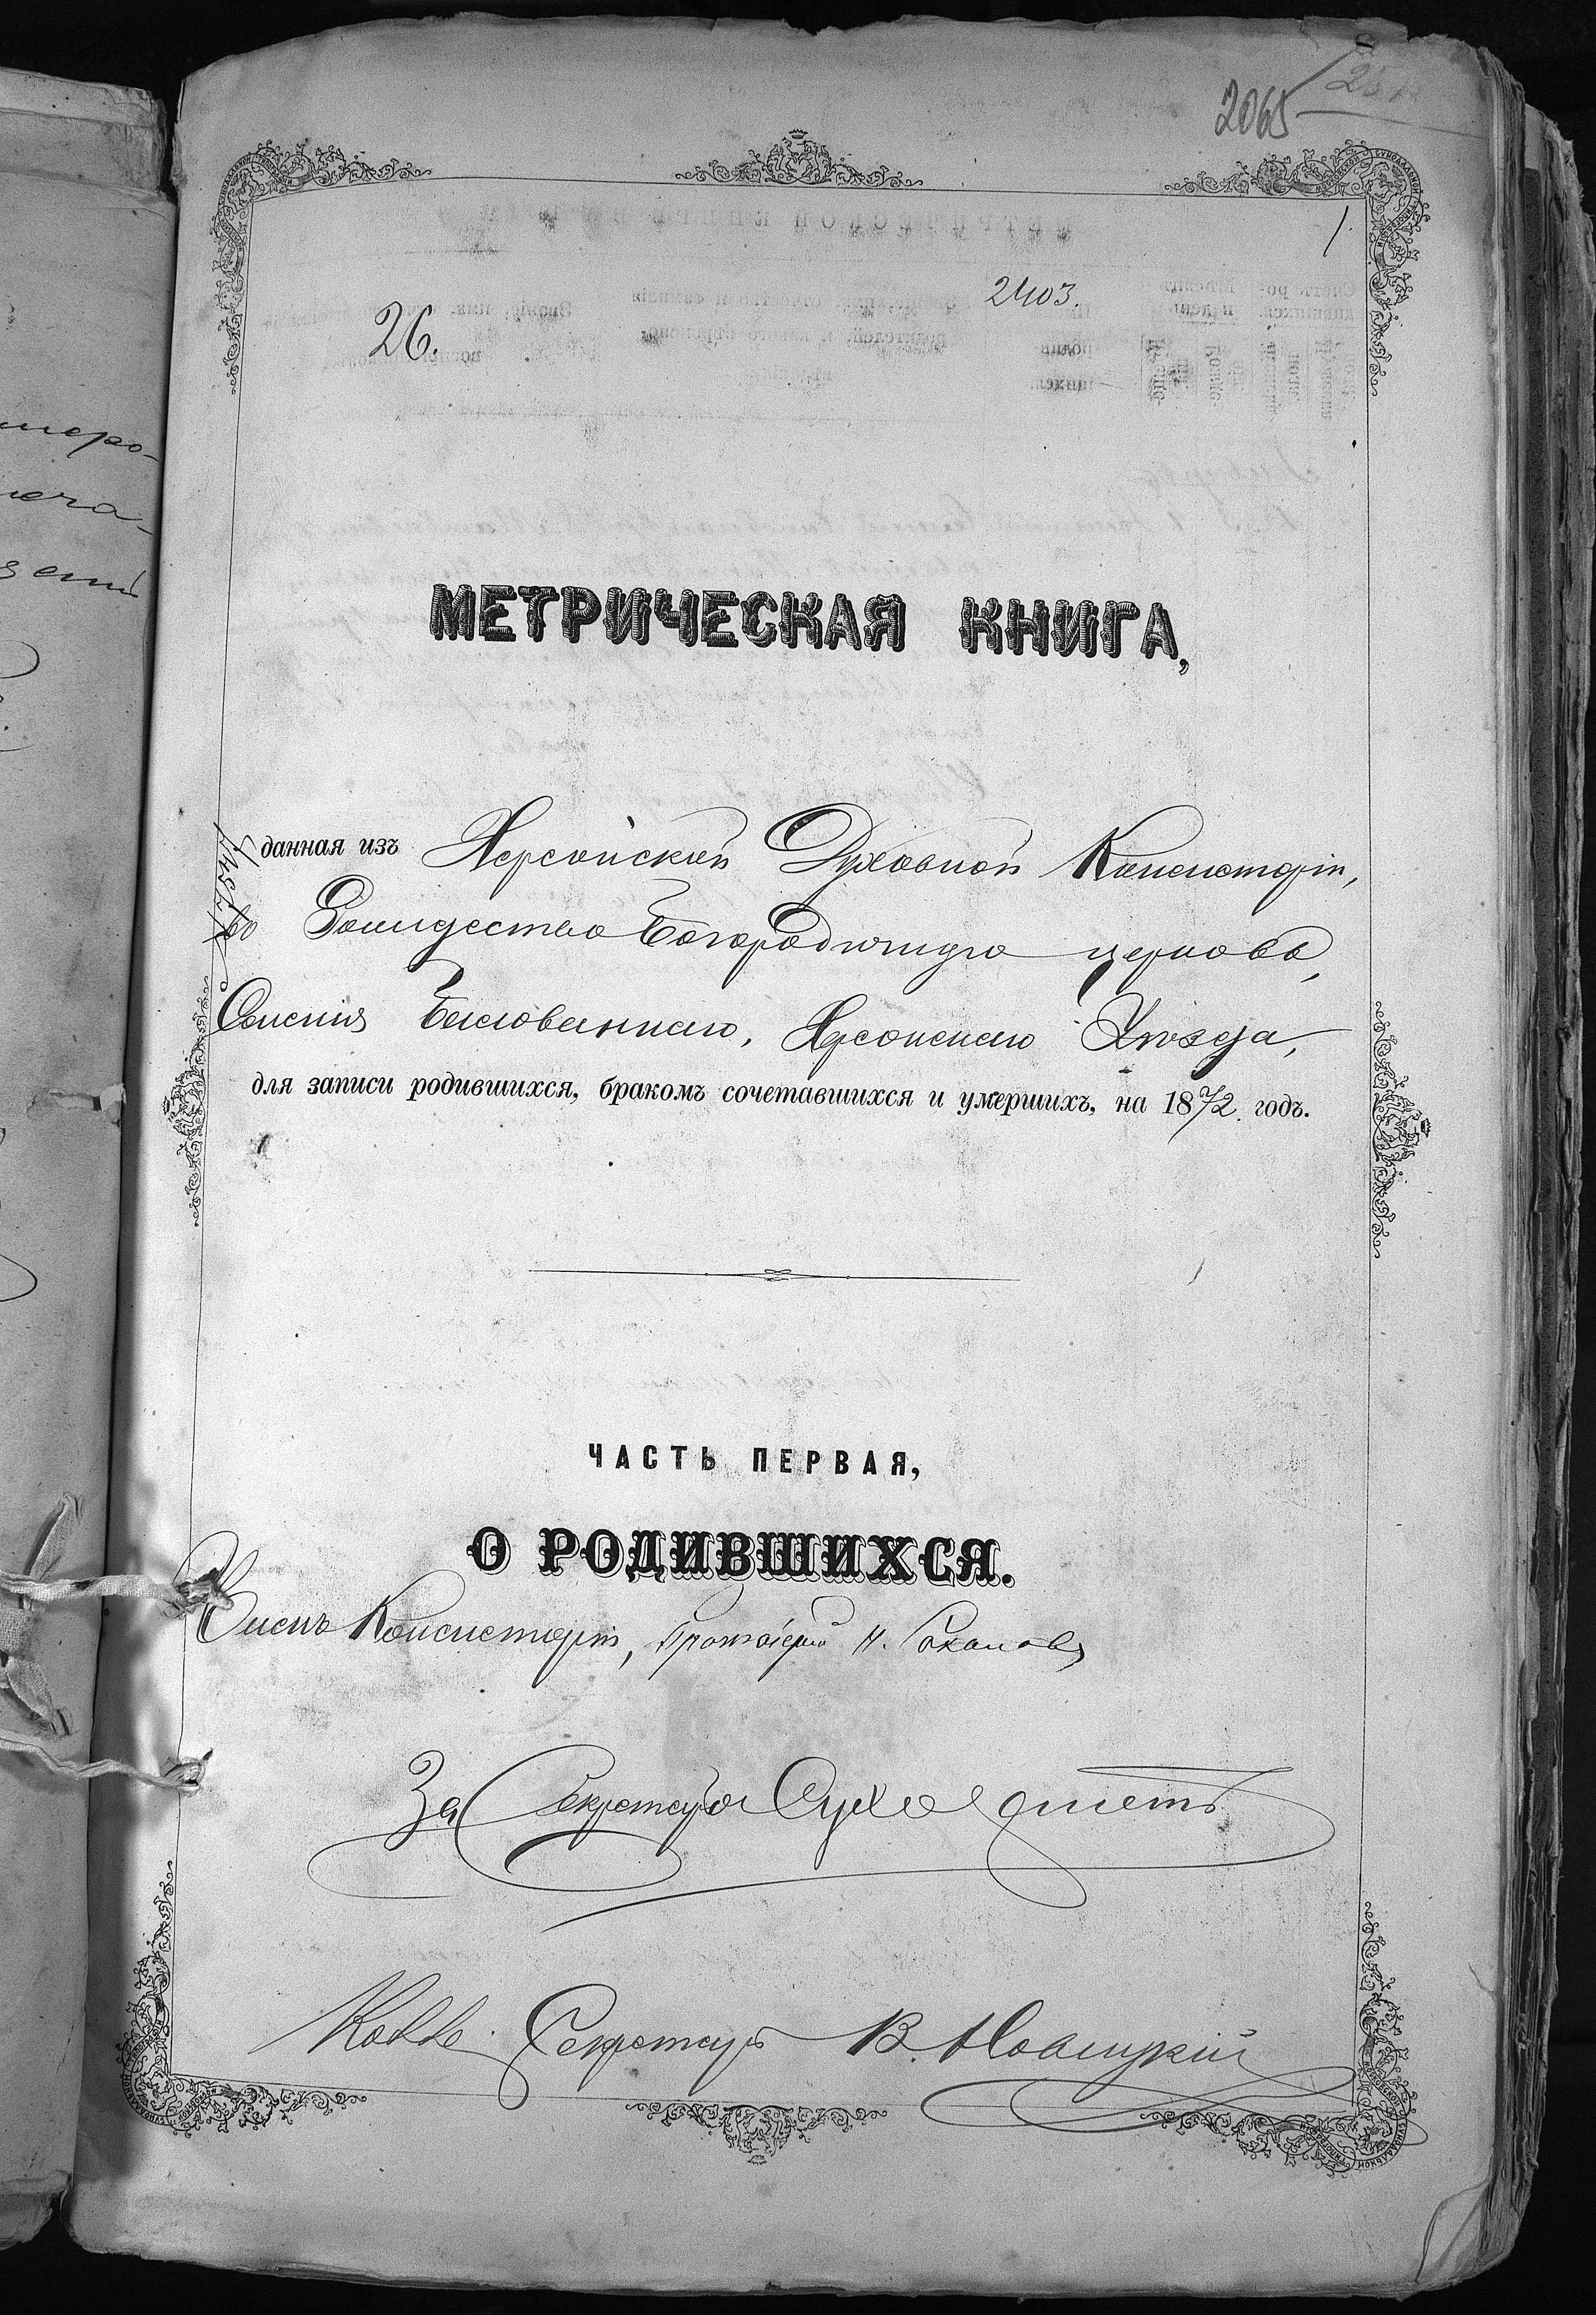 2065
1.
26.
2403.
МЕТРИЧЕСКАЯ КНИГА,
данная изъ Херсонской Духовной Консисторіи,
во Рождество Богородичную церковь,
Селенія Балованнаго, Херсонскаго Уѣзда,
для записи родившихся, бракомъ сочетавшихся и умершихъ, на 1872. годъ.
ЧАСТЬ ПЕРВАЯ,
О РОДИВШИХСЯ.
Членъ Консисторіи, Протоіерей Н.
За Секретаря
Секретарь В.